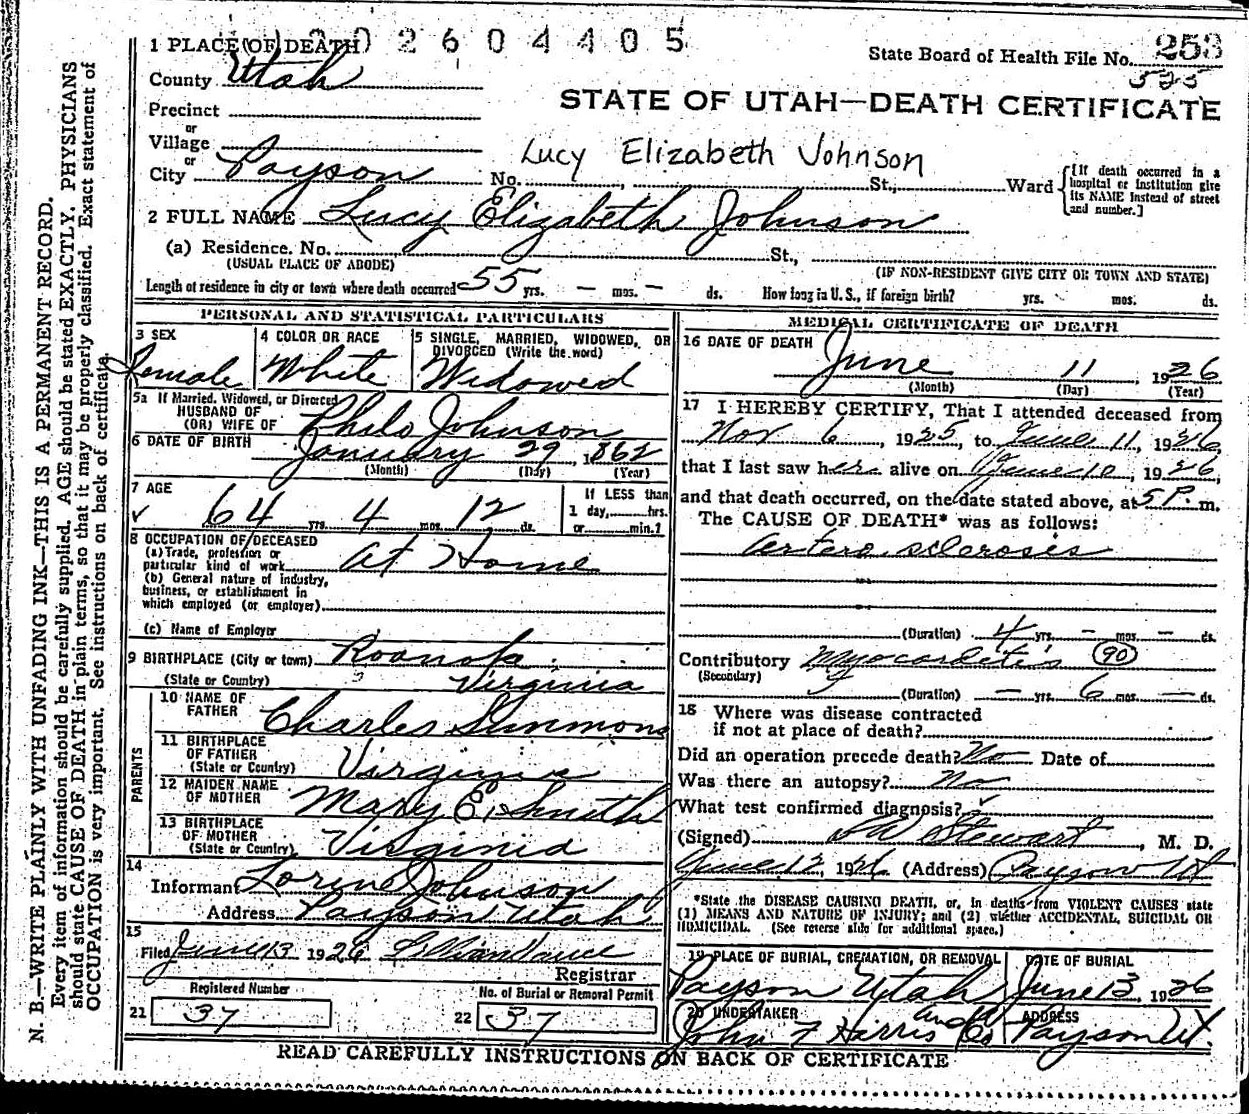 1 PLACE OF DEATH 2 6 0 4 4 0 5
State Board of Health File No. 253
525
County Utah
STATE OF UTAH—DEATH CERTIFICATE
Precinct
or
Village
or
City Payson
Lucy Elizabeth Johnson
No. , St., Ward
[If death occurred in a
hospital or institution give
its NAME instead of street
and number.]
2 FULL NAME Lucy Elizabeth Johnson
(a) Residence. No. St.,
(USUAL PLACE OF ABODE) (IF NON-RESIDENT GIVE CITY OR TOWN AND STATE)
Length of residence in city or town where death occurred 55 yrs. — mos. — ds. How long in U.S., if foreign birth? yrs. mos. ds.
PERSONAL AND STATISTICAL PARTICULARS
3 SEX
Female
4 COLOR OR RACE
White
5 SINGLE, MARRIED, WIDOWED, OR
DIVORCED (Write the word)
Widowed
5a If Married, Widowed, or Divorced
HUSBAND OF
(OR) WIFE OF Philo Johnson
6 DATE OF BIRTH January 29, 1862
(Month) (Day) (Year)
7 AGE
64 yrs. 4 mos. 12 ds.
If LESS than
1 day, hrs.
or min.?
8 OCCUPATION OF DECEASED
(a) Trade, profession or
particular kind of work At Home
(b) General nature of industry,
business, or establishment in
which employed (or employer)
(c) Name of Employer
9 BIRTHPLACE (City or town) Roanoke
(State or Country) Virginia
PARENTS
10 NAME OF
FATHER Charles Simmons
11 BIRTHPLACE
OF FATHER
(State or Country) Virginia
12 MAIDEN NAME
OF MOTHER Mary E. Smith
13 BIRTHPLACE
OF MOTHER
(State or Country) Virginia
14
Informant Loren Johnson
Address Payson Utah
15
Filed June 13 1926
Registrar
Registered Number
21 37
No. of Burial or Removal Permit
22 37
MEDICAL CERTIFICATE OF DEATH
16 DATE OF DEATH June 11, 1926
(Month) (Day) (Year)
17 I HEREBY CERTIFY, That I attended deceased from
Nov 6, 1925, to June 11, 1926,
that I last saw her alive on June 10, 1926,
and that death occurred, on the date stated above, at 5 P. m.
The CAUSE OF DEATH* was as follows:
Artero sclerosis
(Duration) 4 yrs. — mos. — ds.
Contributory Myocarditis 90
(Secondary)
(Duration) — yrs. 6 mos. — ds.
18 Where was disease contracted
if not at place of death?
Did an operation precede death? No Date of
Was there an autopsy? No
What test confirmed diagnosis?
(Signed) Stewart, M. D.
June 12, 1926. (Address) Payson Ut
*State the DISEASE CAUSING DEATH, or, in deaths from VIOLENT CAUSES state
(1) MEANS AND NATURE OF INJURY; and (2) whether ACCIDENTAL, SUICIDAL OR
HOMICIDAL. (See reverse side for additional space.)
19 PLACE OF BURIAL, CREMATION, OR REMOVAL
Payson Utah
DATE OF BURIAL
June 13, 1926
20 UNDERTAKER
John F Harris and Co
ADDRESS
Payson Ut.
READ CAREFULLY INSTRUCTIONS ON BACK OF CERTIFICATE
N. B.—WRITE PLAINLY WITH UNFADING INK—THIS IS A PERMANENT RECORD.
Every item of information should be carefully supplied. AGE should be stated EXACTLY. PHYSICIANS
should state CAUSE OF DEATH in plain terms, so that it may be properly classified. Exact statement of
OCCUPATION is very important. See instructions on back of certificate.